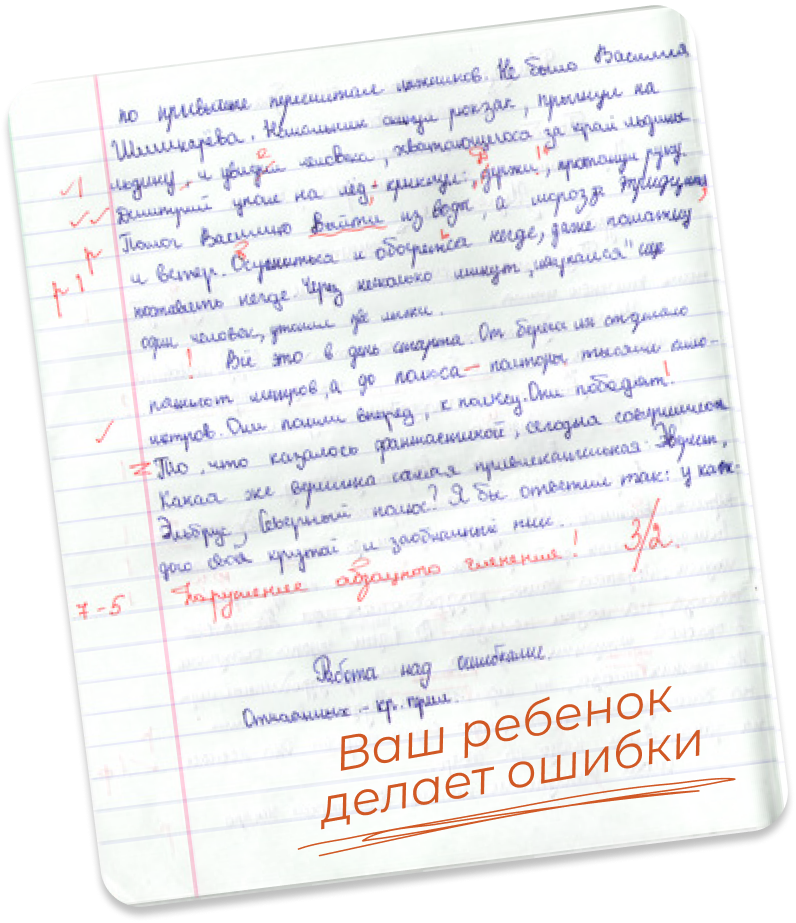 по привычке пересчитал лыжников. Не было Василия
Шишкарёва. Начальник скинул рюкзак, прыгнул на
льдину, и увидел человека, хватающегося за край льдины.
Дмитрий упал на лёд, крикнул: "Держи", протянул руку.
Помог Василию выйти из воды, а мороз тридцать,
и ветер. Осушиться и обогреться негде, даже палатку
поставить негде. Через несколько минут „искупался" ещё
один человек, утопил две лыжи.
! Всё это в день старта. От берега их отделяло
пятьсот метров, а до полюса – полторы тысячи кило-
метров. Они пошли вперёд, к полюсу. Они победят!
Z То, что казалось фантастикой, сегодня совершилось
Какая же вершина самая привлекательная: Эверест,
Эльбрус, Северный полюс? Я бы ответил так: у каж-
дого свой крутой и заоблачный пик.
3/2.
7 - 5 Нарушение абзацного членения!
Работа над ошибками.
Отчаянных - кр. прил.
Ваш ребенок
делает ошибки